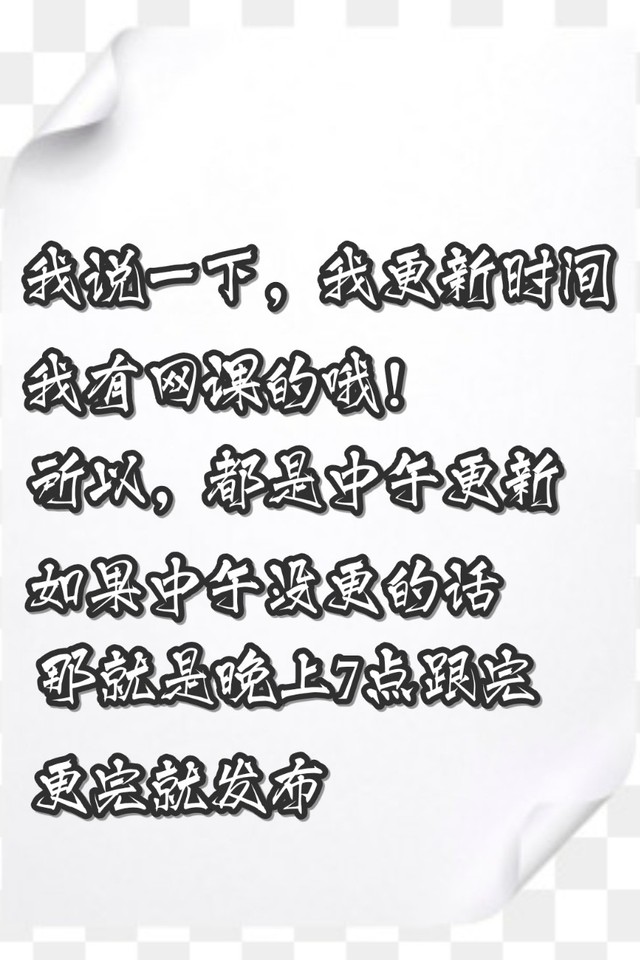 我说一下，我更新时间
我有网课的哦！
所以，都是中午更新
如果中午没更的话
那就是晚上7点跟完
更完就发布